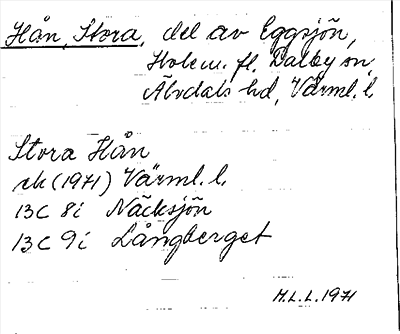 Hån, Stora, del av Eggsjön,
Hole m. fl. Dalby sn,
Älvdals hd, Värml. l.
Stora Hån
ek (1971) Värml. l.
13C 8i Näcksjön
13C 9i Långberget
M.L.L. 1971